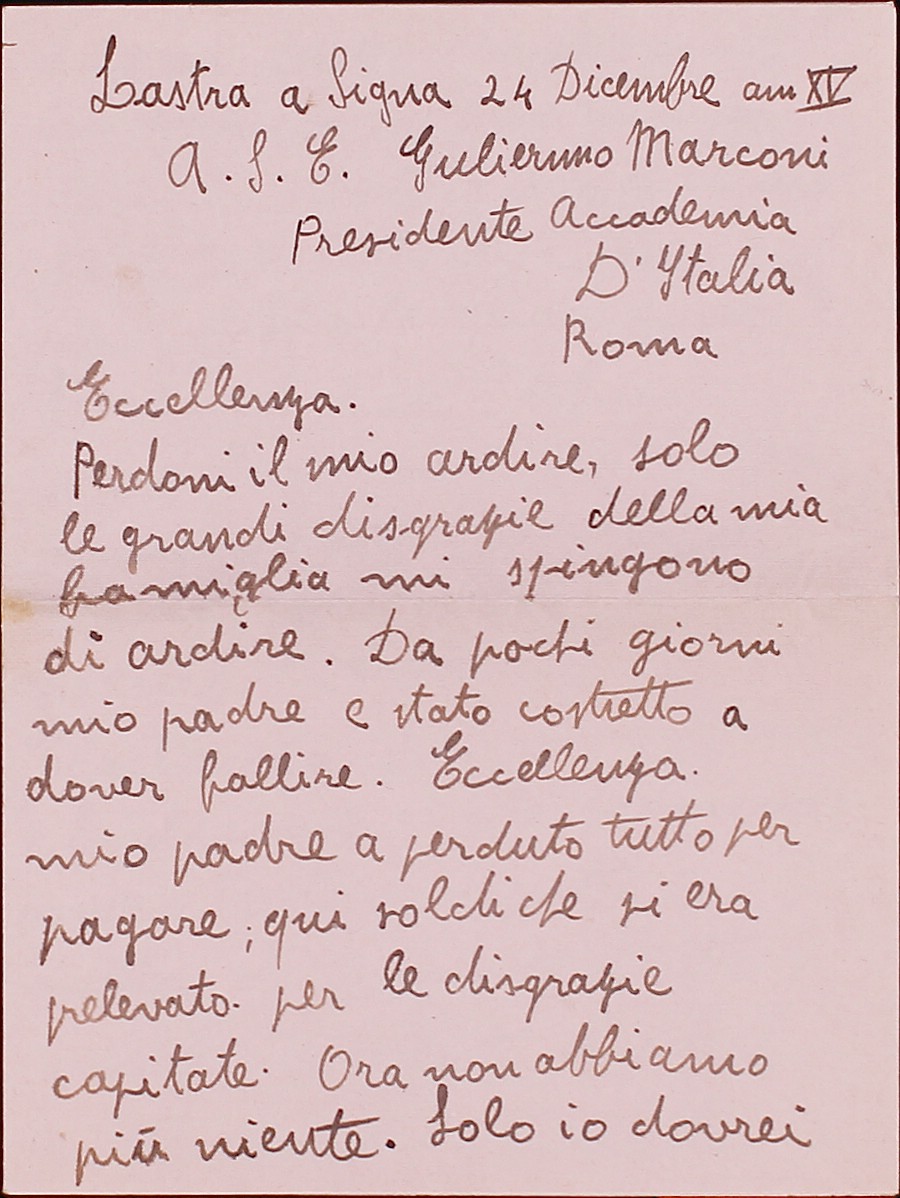 Lastra a Signa 24 Dicembre ann XV
A. S. E. Gulierumo Marconi
Presidente Accademia
D'Italia
Roma
Eccellenza.
Perdoni il mio ardire, solo
le grandi disgrazie della mia
famiglia mi spingono
di ardire. Da pochi giorni
mio padre e stato costretto a
dover fallire. Eccellenza.
mio padre a perduto tutto per
pagare, qui soldi che si era
prelevato. per le disgrazie
capitate. Ora non abbiamo
più niente. Solo io dovrei